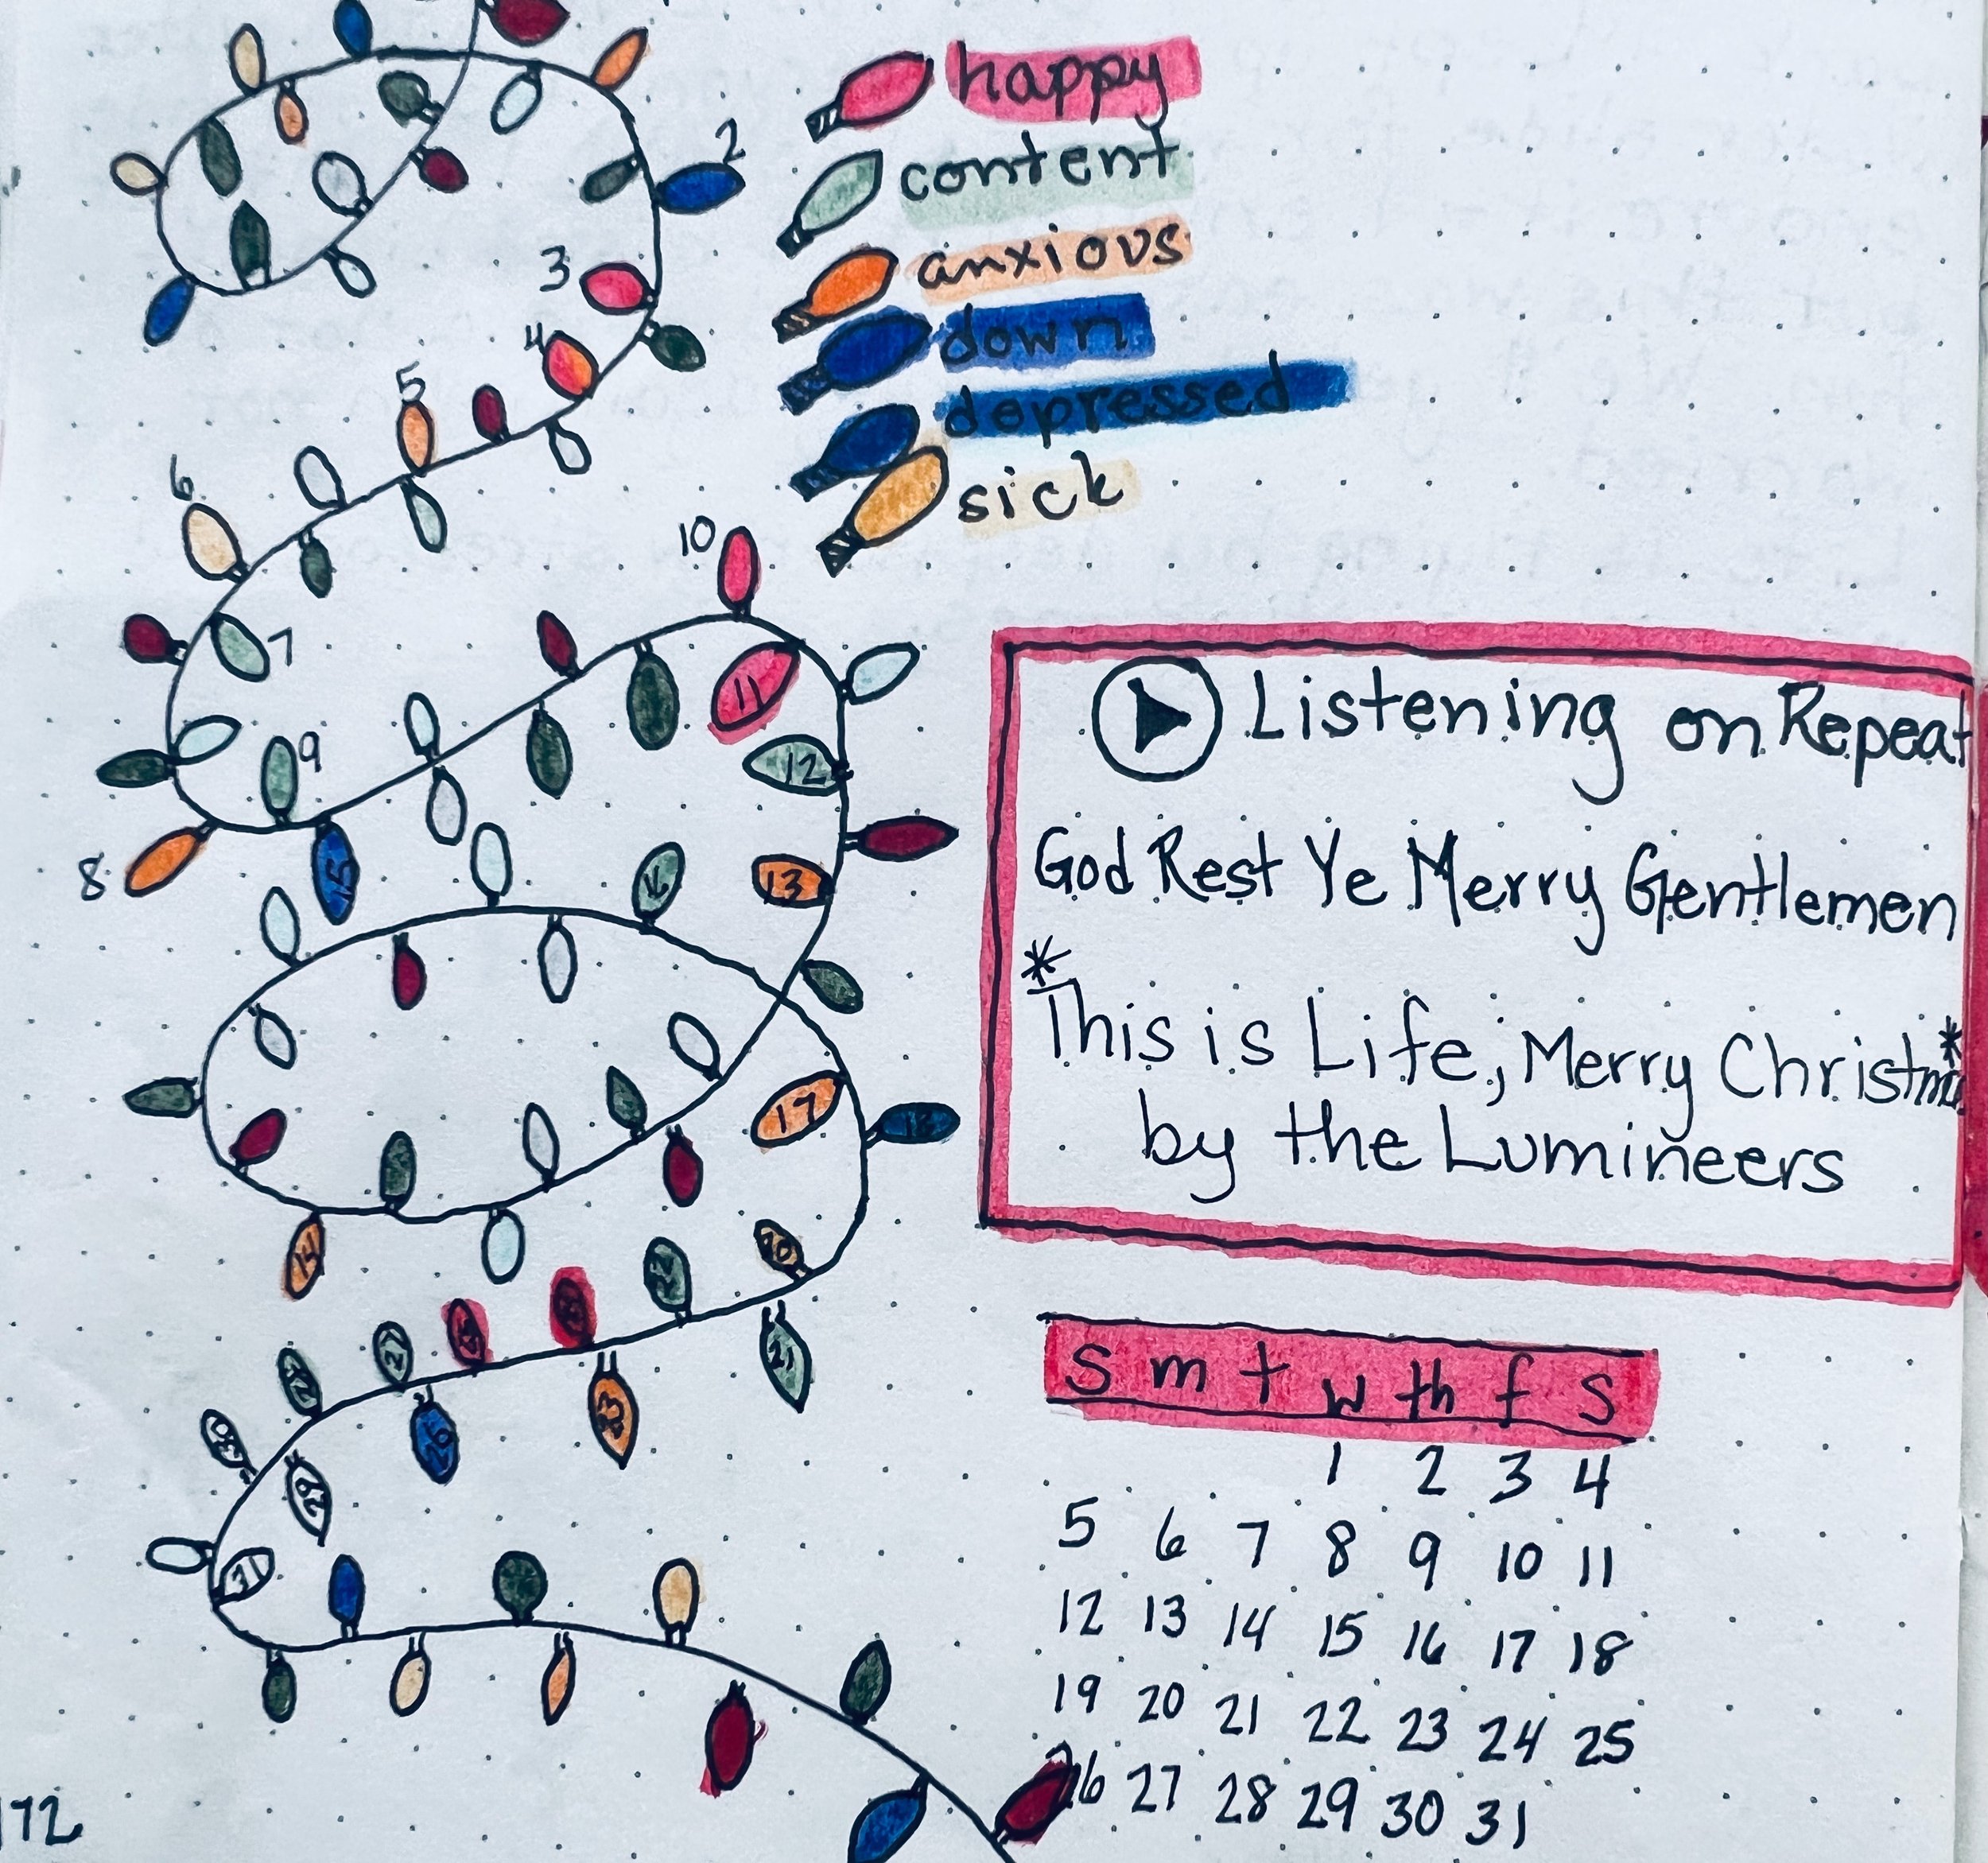 happy
content
anxious
down
depressed
sick
2
3
4
5
6
7
8
9
10
11
12
13
14
15
16
17
18
20
21
22
23
26
29
30
31
Listening on Repeat
God Rest Ye Merry Gentlemen
*This is Life, Merry Christma*
by the Lumineers
S m t w th f S
1 2 3 4
5 6 7 8 9 10 11
12 13 14 15 16 17 18
19 20 21 22 23 24 25
26 27 28 29 30 31
172